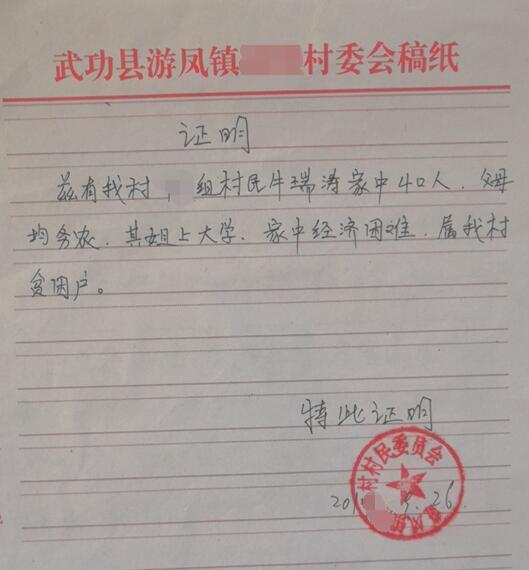 武功县游凤镇 村委会稿纸
证明
兹有我村 组村民牛瑞涛家中4口人，父母
均务农，其姐上大学，家中经济困难，属我村
贫困户。
特此证明
村村民委员会
26